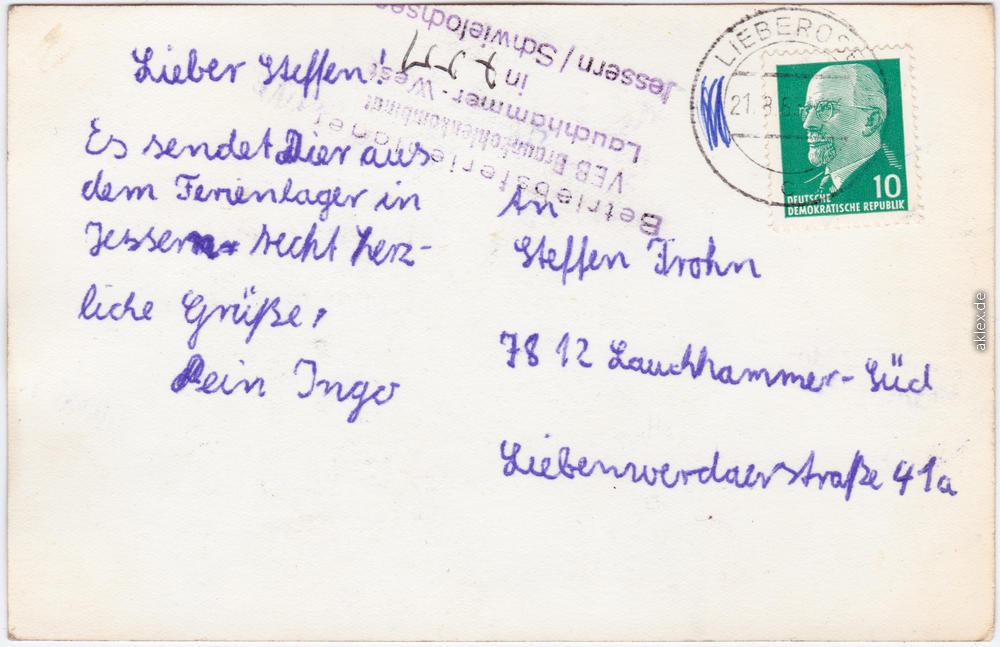 Lieber Steffen!
Es sendet Dier aus
dem Ferienlager in
Jessern recht herz-
liche Grüße,
Dein Ingo
Betriebsferienlager
VEB Braunkohlenkombinat
Lauchhammer-West
in
Jessern / Schwielochsee
LIEBEROSE
21. 8.
10
DEUTSCHE
DEMOKRATISCHE REPUBLIK
An
Steffen Frohn
7812 Lauchhammer-Süd
Liebenwerdaerstraße 41a
aklex.de